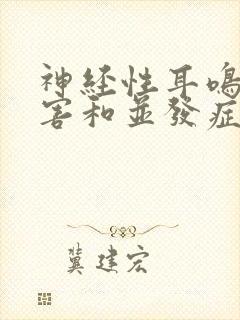 神经性耳鳴
害和並發症
冀建宏